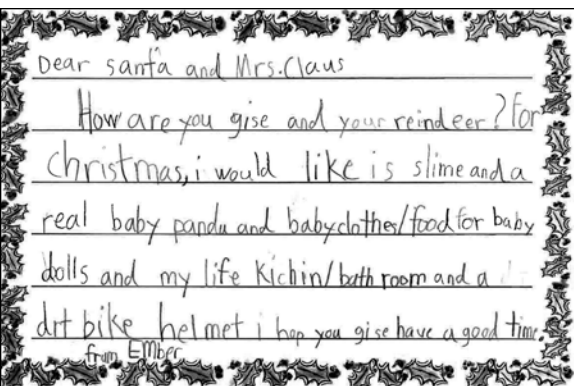 Dear santa and Mrs.Claus
How are you gise and your reindeer? For
christmas, i would like is slime and a
real baby panda and baby clothes/food for baby
dolls and my life Kichin/bath room and a
drt bike helmet i hop you gise have a good time.
frum EMber